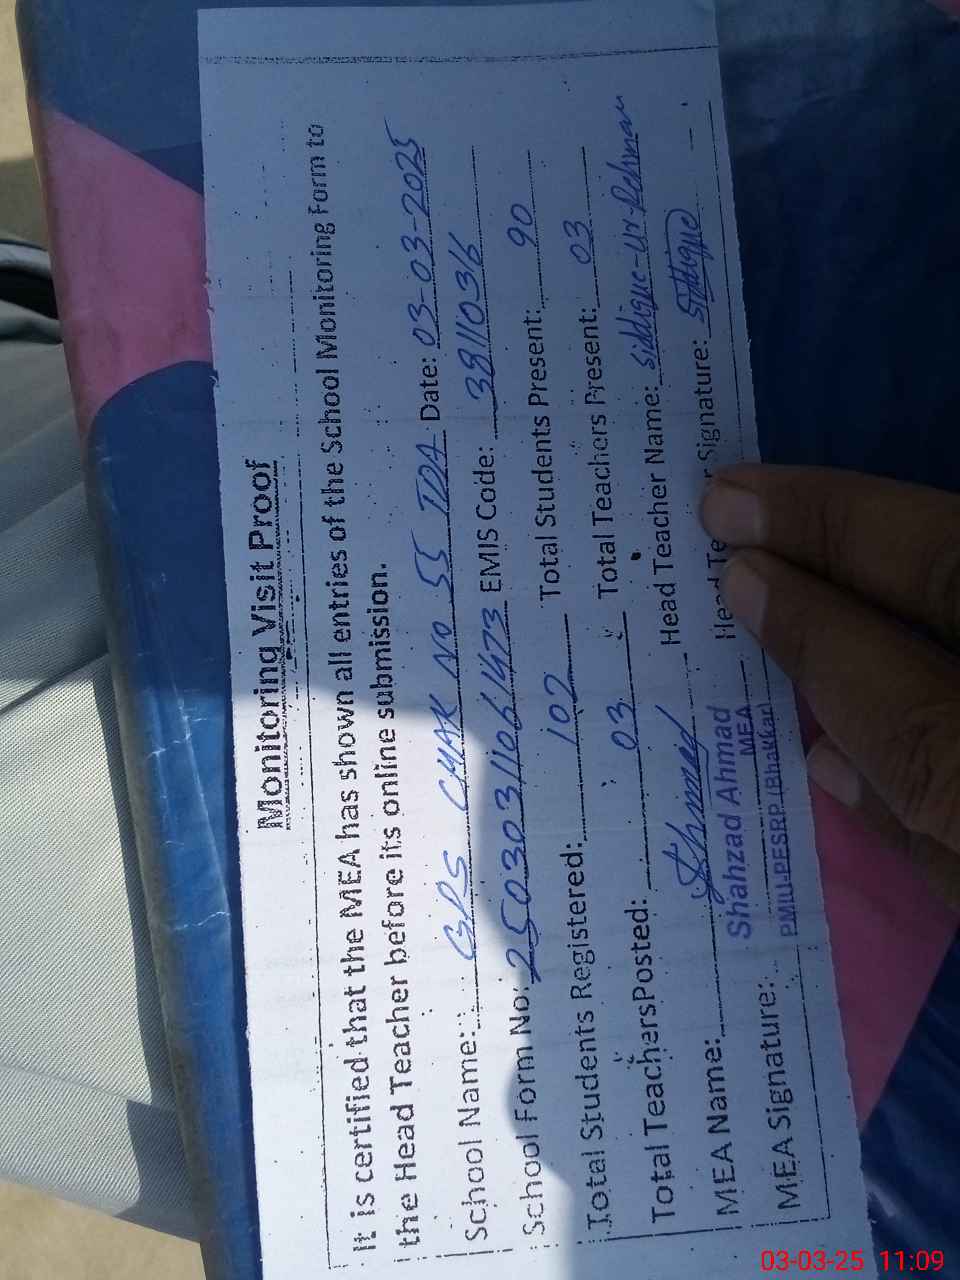 Monitoring Visit Proof
It is certified that the MEA has shown all entries of the School Monitoring Form to
the Head Teacher before its online submission.
School Name: GPS CHAK No 55 TDA Date: 03-03-2025
School Form No: 25030311061473 EMIS Code: 38110316
Total Students Registered: 102 Total Students Present: 90
Total Teachers Posted: 03 Total Teachers Present: 03
MEA Name: Ahmad Head Teacher Name: Siddique-Ur-Rehman
Shahzad Ahmad
MEA
MEA Signature: PMIU-PESRP (Bhakkar) Head Signature: Siddique
03-03-25 11:09